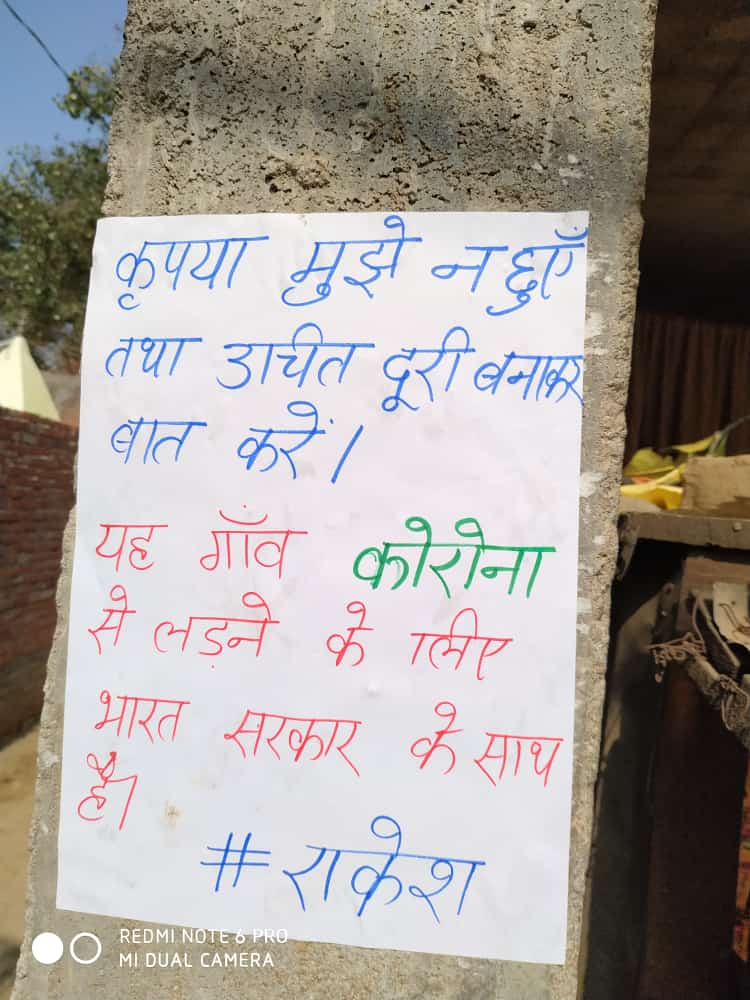 कृपया मुझे न छुएँ
तथा उचित दूरी बनाकर
बात करें।
यह गाँव कोरोना
से लड़ने के लिए
भारत सरकार के साथ
है।
#राकेश
REDMI NOTE 6 PRO
MI DUAL CAMERA